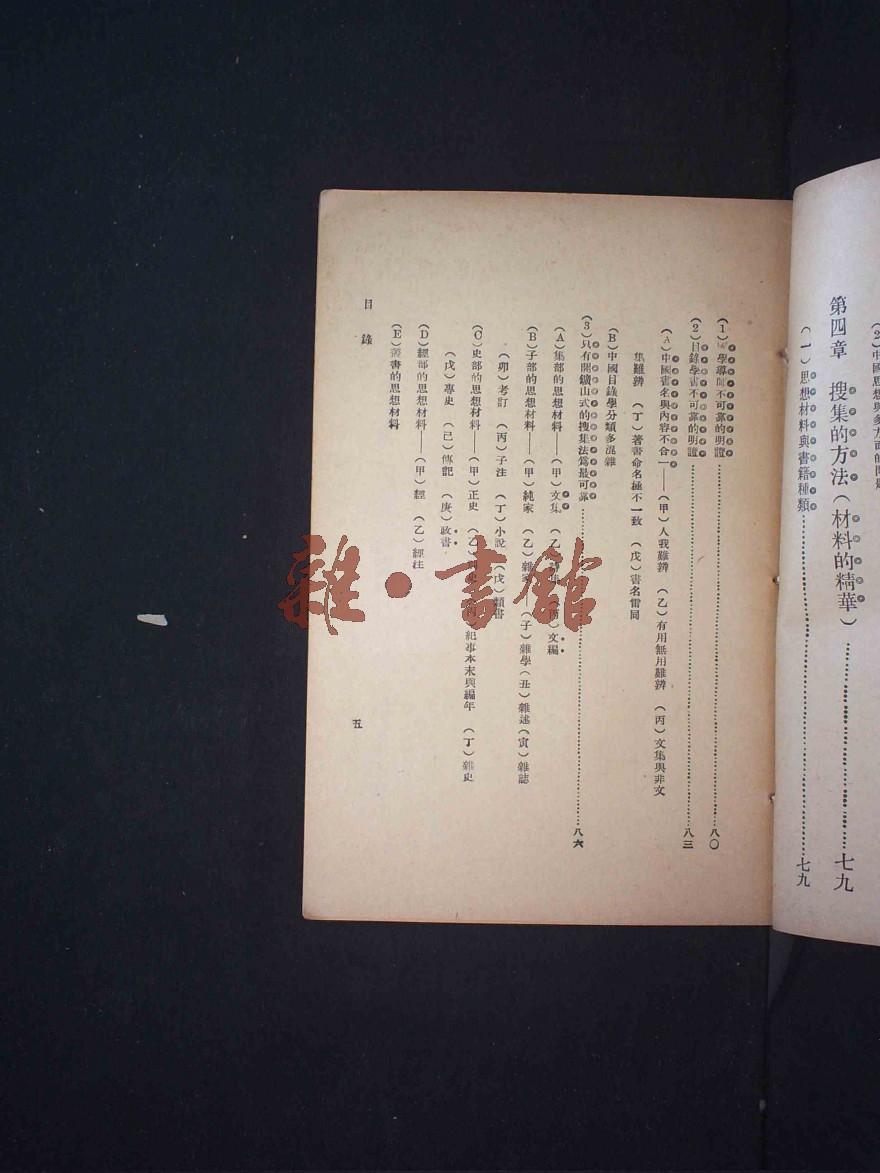 (2)中國思想與多方面的問題
第四章　搜集的方法(材料的精華)…………七九
(一)思想材料與書籍種類…………七九
(1)學導師不可靠的明證…………八〇
(2)目錄學書不可靠的明證…………八三
(A)中國書名與內容不合一——(甲)人我難辨　(乙)有用無用難辨　(丙)文集與非文
集難辨　(丁)著書命名極不一致　(戊)書名雷同
(B)中國目錄學分類多混雜
(3)只有開鑛山式的搜集法爲最可靠…………八六
(A)集部的思想材料——(甲)文集　(乙)　(丙)文編
(B)子部的思想材料——(甲)純家　(乙)雜家——(子)雜學(丑)雜述(寅)雜誌
(卯)考訂　(丙)子注　(丁)小說　(戊)類書
(C)史部的思想材料——(甲)正史　(乙)史　紀事本末與編年　(丁)雜史
(戊)專史　(己)傳記　(庚)政書
(D)經部的思想材料——(甲)經　(乙)經注
(E)叢書的思想材料
目錄
五
雜·書館